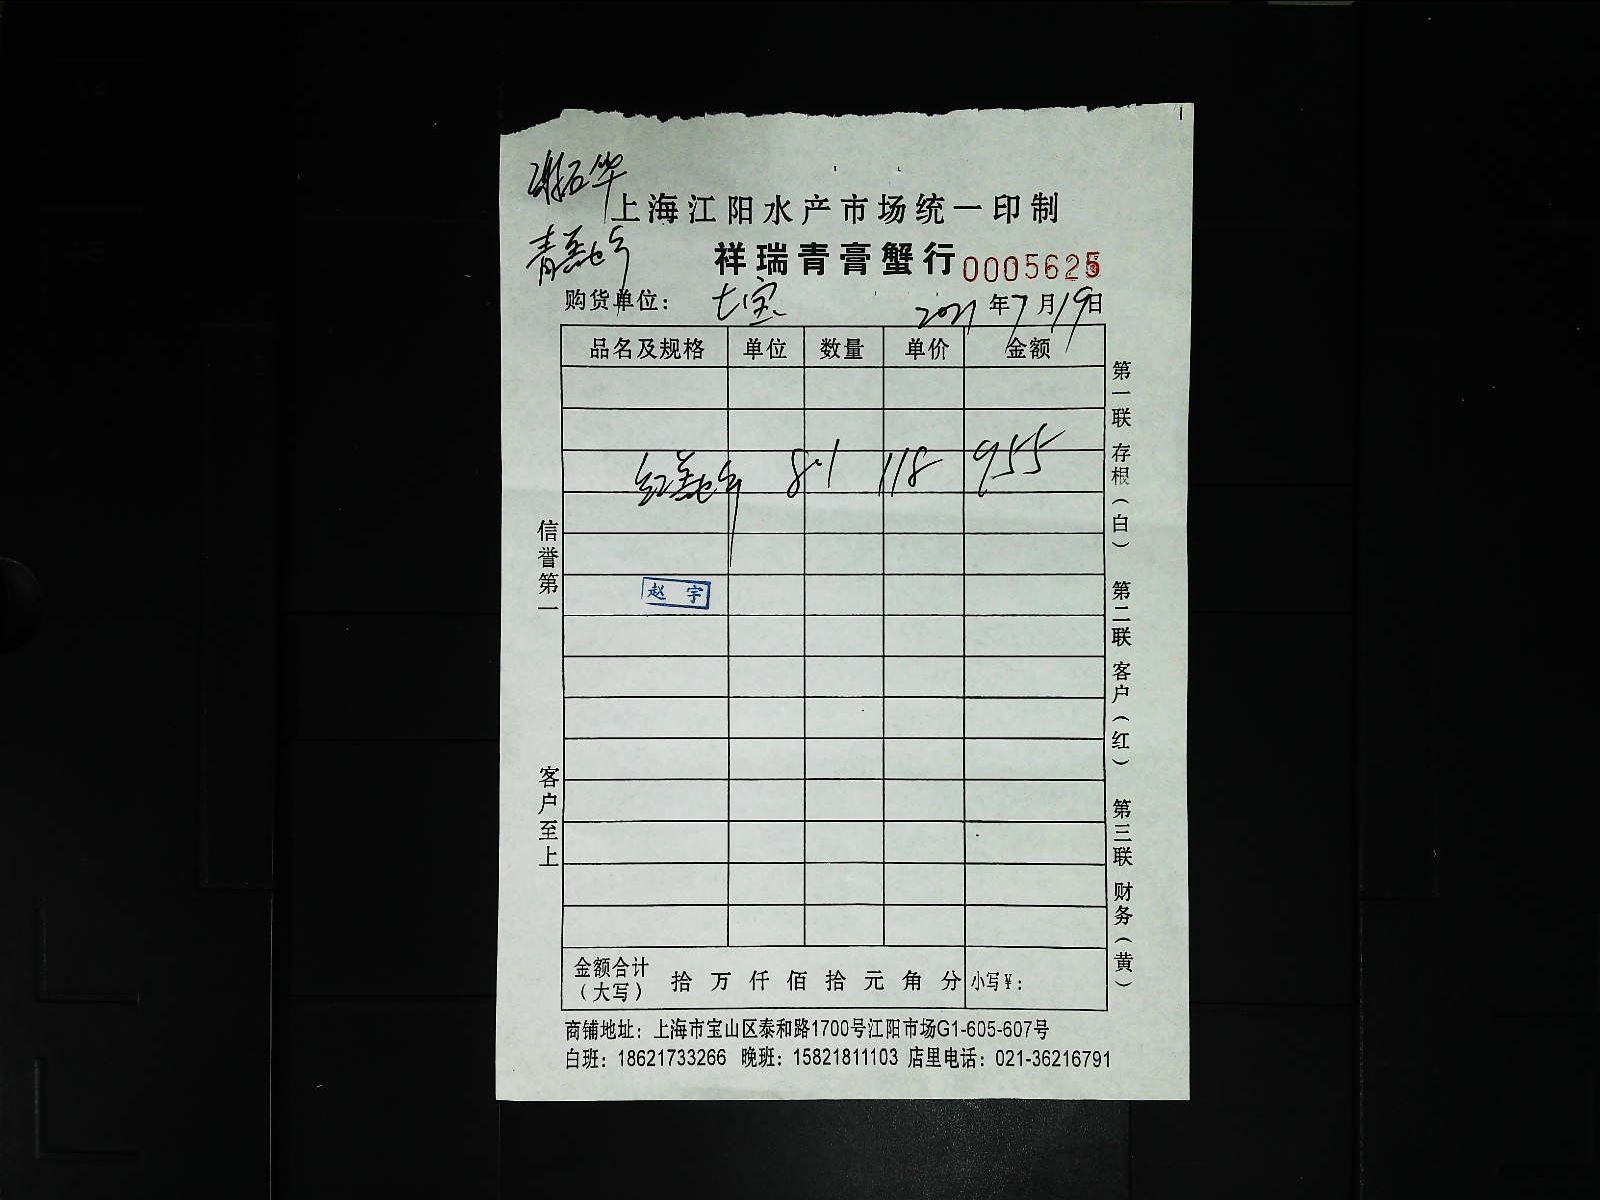 谢石华
上海江阳水产市场统一印制
青羔蟹
祥瑞青膏蟹行 0005625
购货单位： 七宝 2021年7月19日
品名及规格 单位 数量 单价 金额
8.1 118 955
赵宇
信誉第一
客户至上
第一联 存根（白） 第二联 客户（红） 第三联 财务（黄）
金额合计（大写） 拾 万 仟 佰 拾 元 角 分 小写¥：
商铺地址：上海市宝山区泰和路1700号江阳市场G1-605-607号
白班：18621733266 晚班：15821811103 店里电话：021-36216791